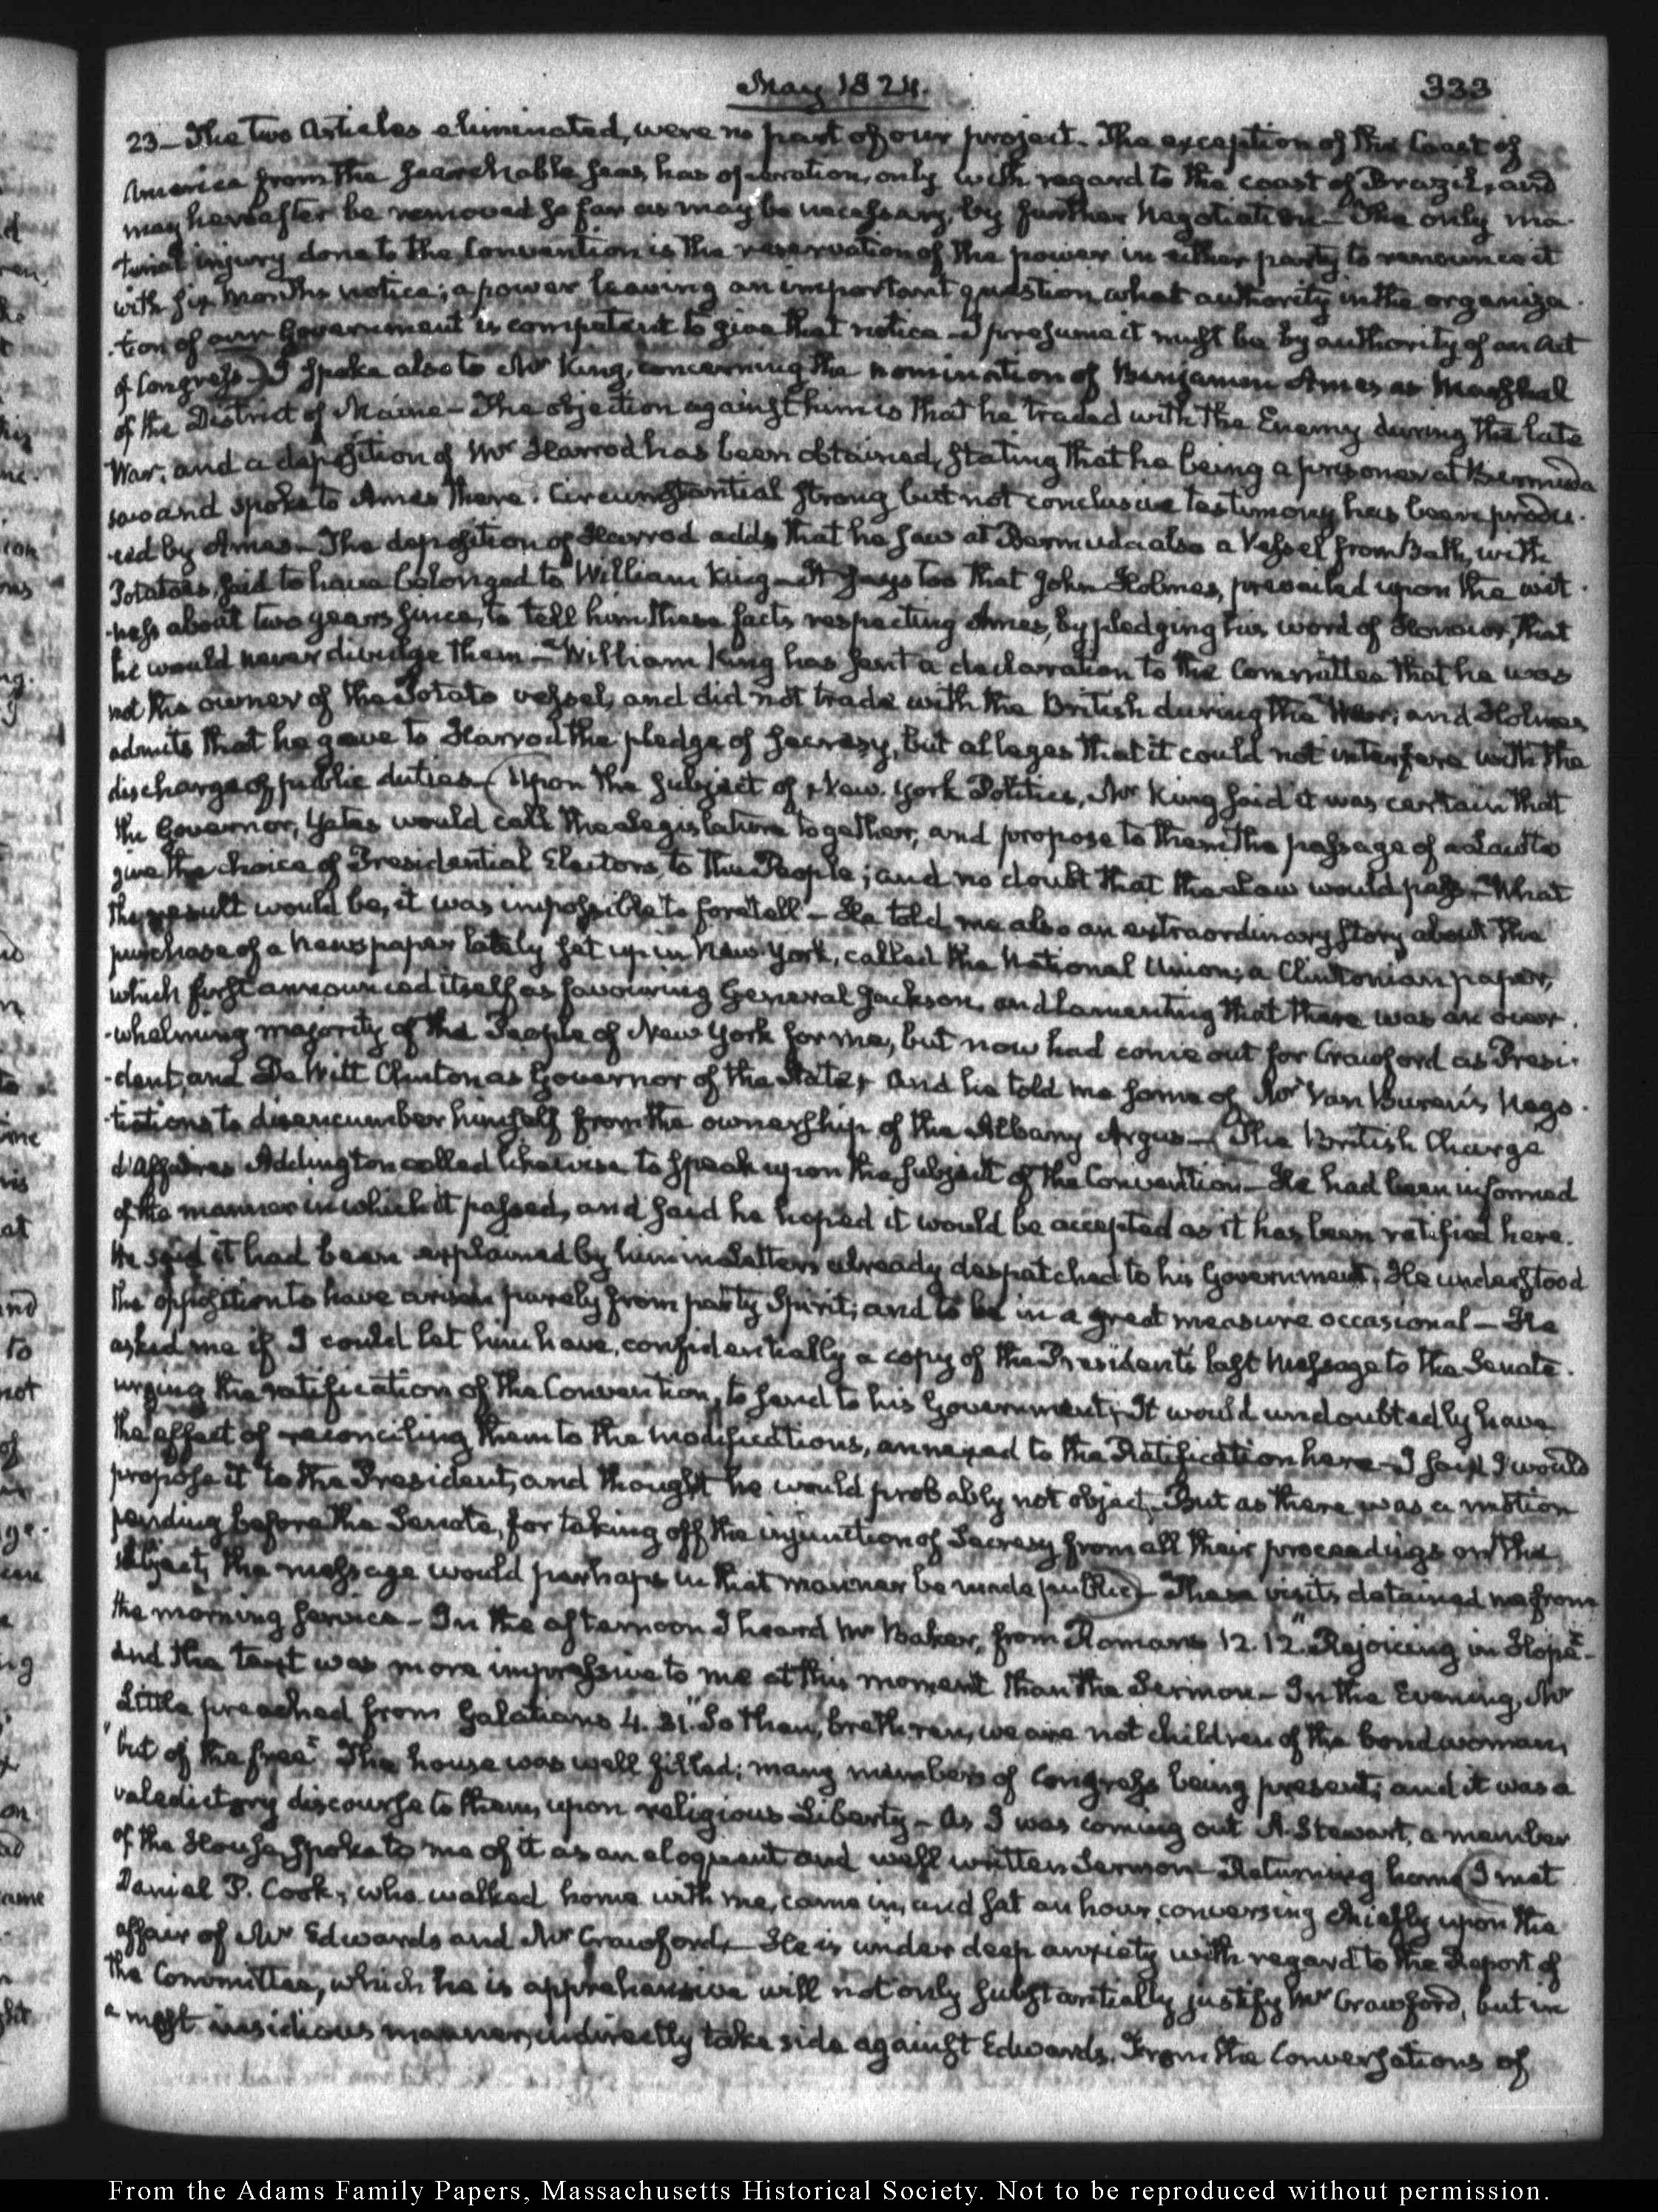 May 1824.
333
23_ The two Articles eliminated, were no part of our project_ The exception of the Coast of
America from the searchable seas, has operation, only with regard to the coast of Brazil, and
may hereafter be removed so far as may be necessary, by further Negotiation_ The only ma-
terial injury done to the Convention is the reservation of the power in either party to renounce it
with six months notice; a power leaving an important question what authority in the organiza-
-tion of our Government is competent to give that notice_ I presume it must be by authority of an Act
of Congress_ I spoke also to Mr King, concerning the nomination of Benjamin Ames as Marshal
of the District of Maine_ The objection against him is that he traded with the Enemy during the late
War, and a deposition of Mr Harrod has been obtained, stating that he being a prisoner at Bermuda
saw and spoke to Ames there. Circumstantial strong but not conclusive testimony has been produ-
-ced by Ames_ The deposition of Harrod adds that he saw at Bermuda also a Vessel from Bath, with
Potatoes, said to have belonged to William King_ It says too that John Holmes, prevailed upon the wit-
-ness about two years since, to tell him these facts respecting Ames, by pledging his word of Honour, that
he would never divulge them_ William King has sent a declaration to the Committee that he was
not the owner of the Potato vessel, and did not trade with the British during the War; and Holmes
admits that he gave to Harrod the pledge of secresy, but alleges that it could not interfere with the
discharge of public duties_ (Upon the subject of New York Politics, Mr King said it was certain that
the Governor, Yates would call the Legislature together, and propose to them the passage of a Law to
give the choice of Presidential Electors, to the People; and no doubt that the Law would pass_ What
the result would be, it was impossible to foretell_ He told me also an extraordinary story about the
purchase of a newspaper lately set up in New-York, called the National Union; a Clintonian paper,
which first announced itself as favouring General Jackson, and lamenting that there was an over-
-whelming majority of the People of New York for me, but now had come out for Crawford as Presi-
-dent, and De Witt Clinton as Governor of the State, and he told me some of Mr Van Buren's nego-
-tiations to disencumber himself from the ownership of the Albany Argus_ (The British Charge
d'Affaires Addington called likewise to speak upon the subject of the Convention_ He had been informed
of the manner in which it passed, and said he hoped it would be accepted as it has been ratified here.
He said it had been explained by him in Letters already despatched to his Government. He understood
the opposition to have arisen purely from party Spirit; and to be in a great measure occasional_ He
asked me if I could let him have, confidentially a copy of the President's last Message to the Senate
urging the ratification of the Convention, to send to his Government; It would undoubtedly have
the effect of reconciling them to the modifications, annexed to the Ratification here_ I said I would
propose it to the President, and thought he would probably not object. But as there was a motion
pending before the Senate, for taking off the injunction of Secresy from all their proceedings on the
subject, the message would perhaps in that manner be made public)_ These visits detained me from
the morning service_ In the afternoon I heard Mr Baker, from Romans 12. 12 "Rejoicing in Hope"_
and the text was more impressive to me at this moment than the Sermon_ In the Evening, Mr
Little preached from Galatians 4. 31. "So then, brethren, we are not children of the bondwoman,
"but of the free" The house was well filled; many members of Congress being present; and it was a
valedictory discourse to them, upon religious Liberty_ As I was coming out A. Stewart, a member
of the House, spoke to me of it as an eloquent and well written Sermon_ Returning home (I met
Daniel P. Cook, who walked home with me, came in, and sat an hour, conversing chiefly upon the
affair of Mr Edwards and Mr Crawford_ He is under deep anxiety with regard to the Report of
the Committee, which he is apprehensive will not only substantially justify Mr Crawford, but in
a most insidious manner, indirectly take side against Edwards. From the Conversations of
From the Adams Family Papers, Massachusetts Historical Society. Not to be reproduced without permission.